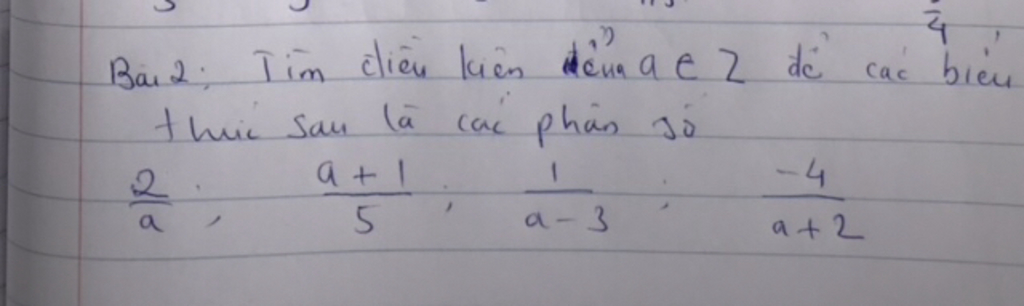 Bài 2: Tìm điều kiện của a ∈ Z để các biểu
thức sau là các phân số
2/a ; (a + 1)/5 ; 1/(a - 3) ; -4/(a + 2)